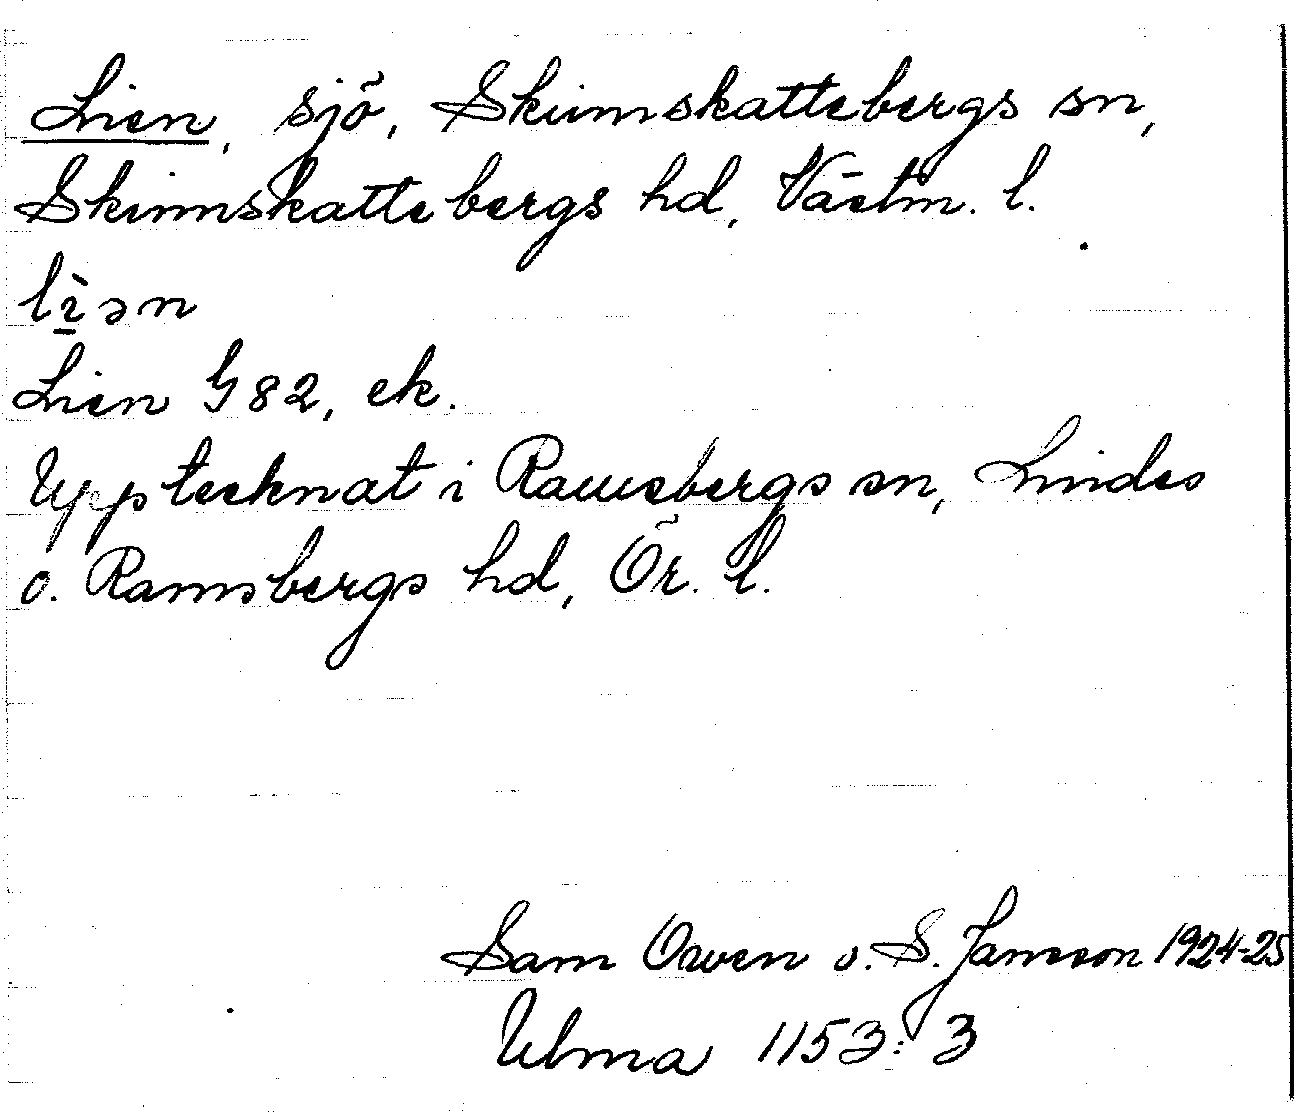 Lien, sjö, Skinnskattebergs sn,
Skinnskattebergs hd, Västm. l.
lìən
Lien G82, ek.
Upptecknat i Ramsbergs sn, Lindes
o. Ramsbergs hd, Ör. l.
Sam Owen o. S. Jansson 1924-25
Ulma 1153:3